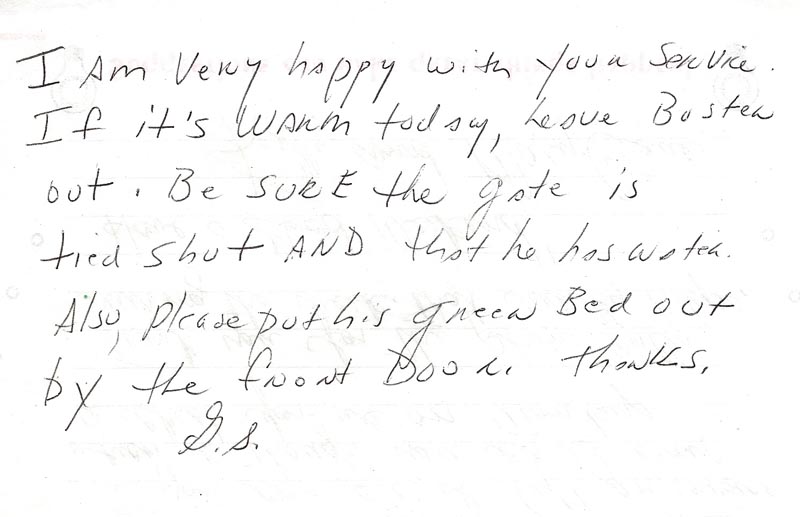 I Am Very happy with your Service.
If it's WARM today, leave Buster
out. Be SURE the gate is
tied shut AND that he has water.
Also, Please put his green Bed out
by the front Door. thanks,
G.S.